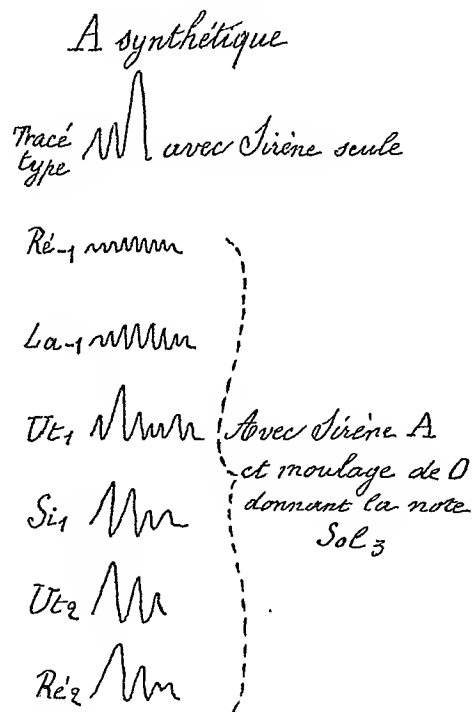 A synthétique
Tracé
type
avec Sirène seule
Ré-1
La-1
Ut1
Si1
Ut2
Ré2
Avec Sirène A
et moulage de O
donnant la note
Sol3